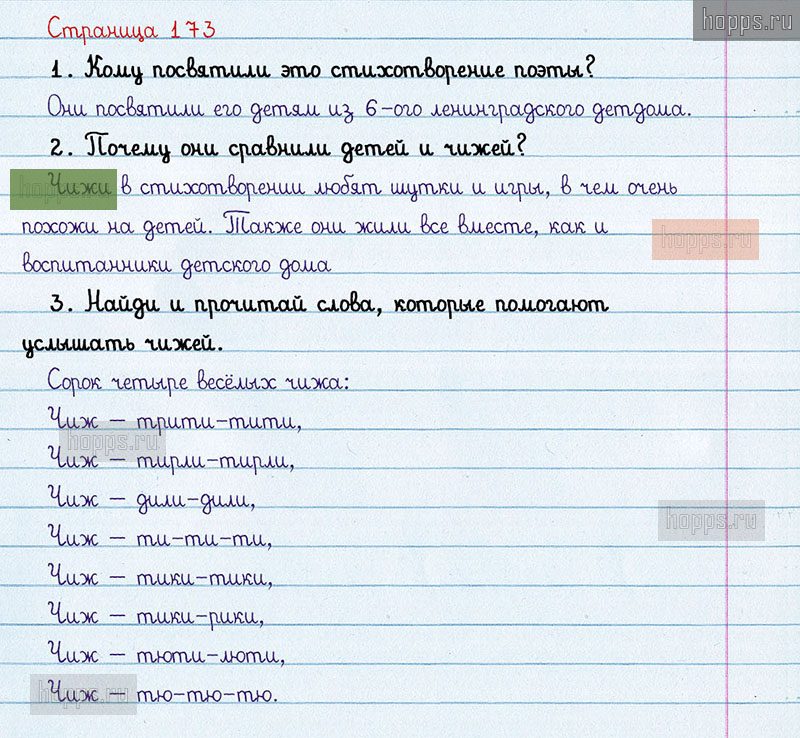 hopps.ru
Страница 173
1. Кому посвятили это стихотворение поэты?
Они посвятили его детям из 6-ого ленинградского детдома.
2. Почему они сравнили детей и чижей?
Чижи в стихотворении любят шутки и игры, в чем очень
похожи на детей. Также они жили все вместе, как и
hopps.ru
воспитанники детского дома
3. Найди и прочитай слова, которые помогают
услышать чижей.
Сорок четыре весёлых чижа:
Чиж – трити-тити,
hopps.ru
Чиж – тирли-тирли,
Чиж – дили-дили,
hopps.ru
Чиж – ти-ти-ти,
Чиж – тики-тики,
Чиж – тики-рики,
Чиж – тюти-люти,
Чиж – тю-тю-тю.
hopps.ru